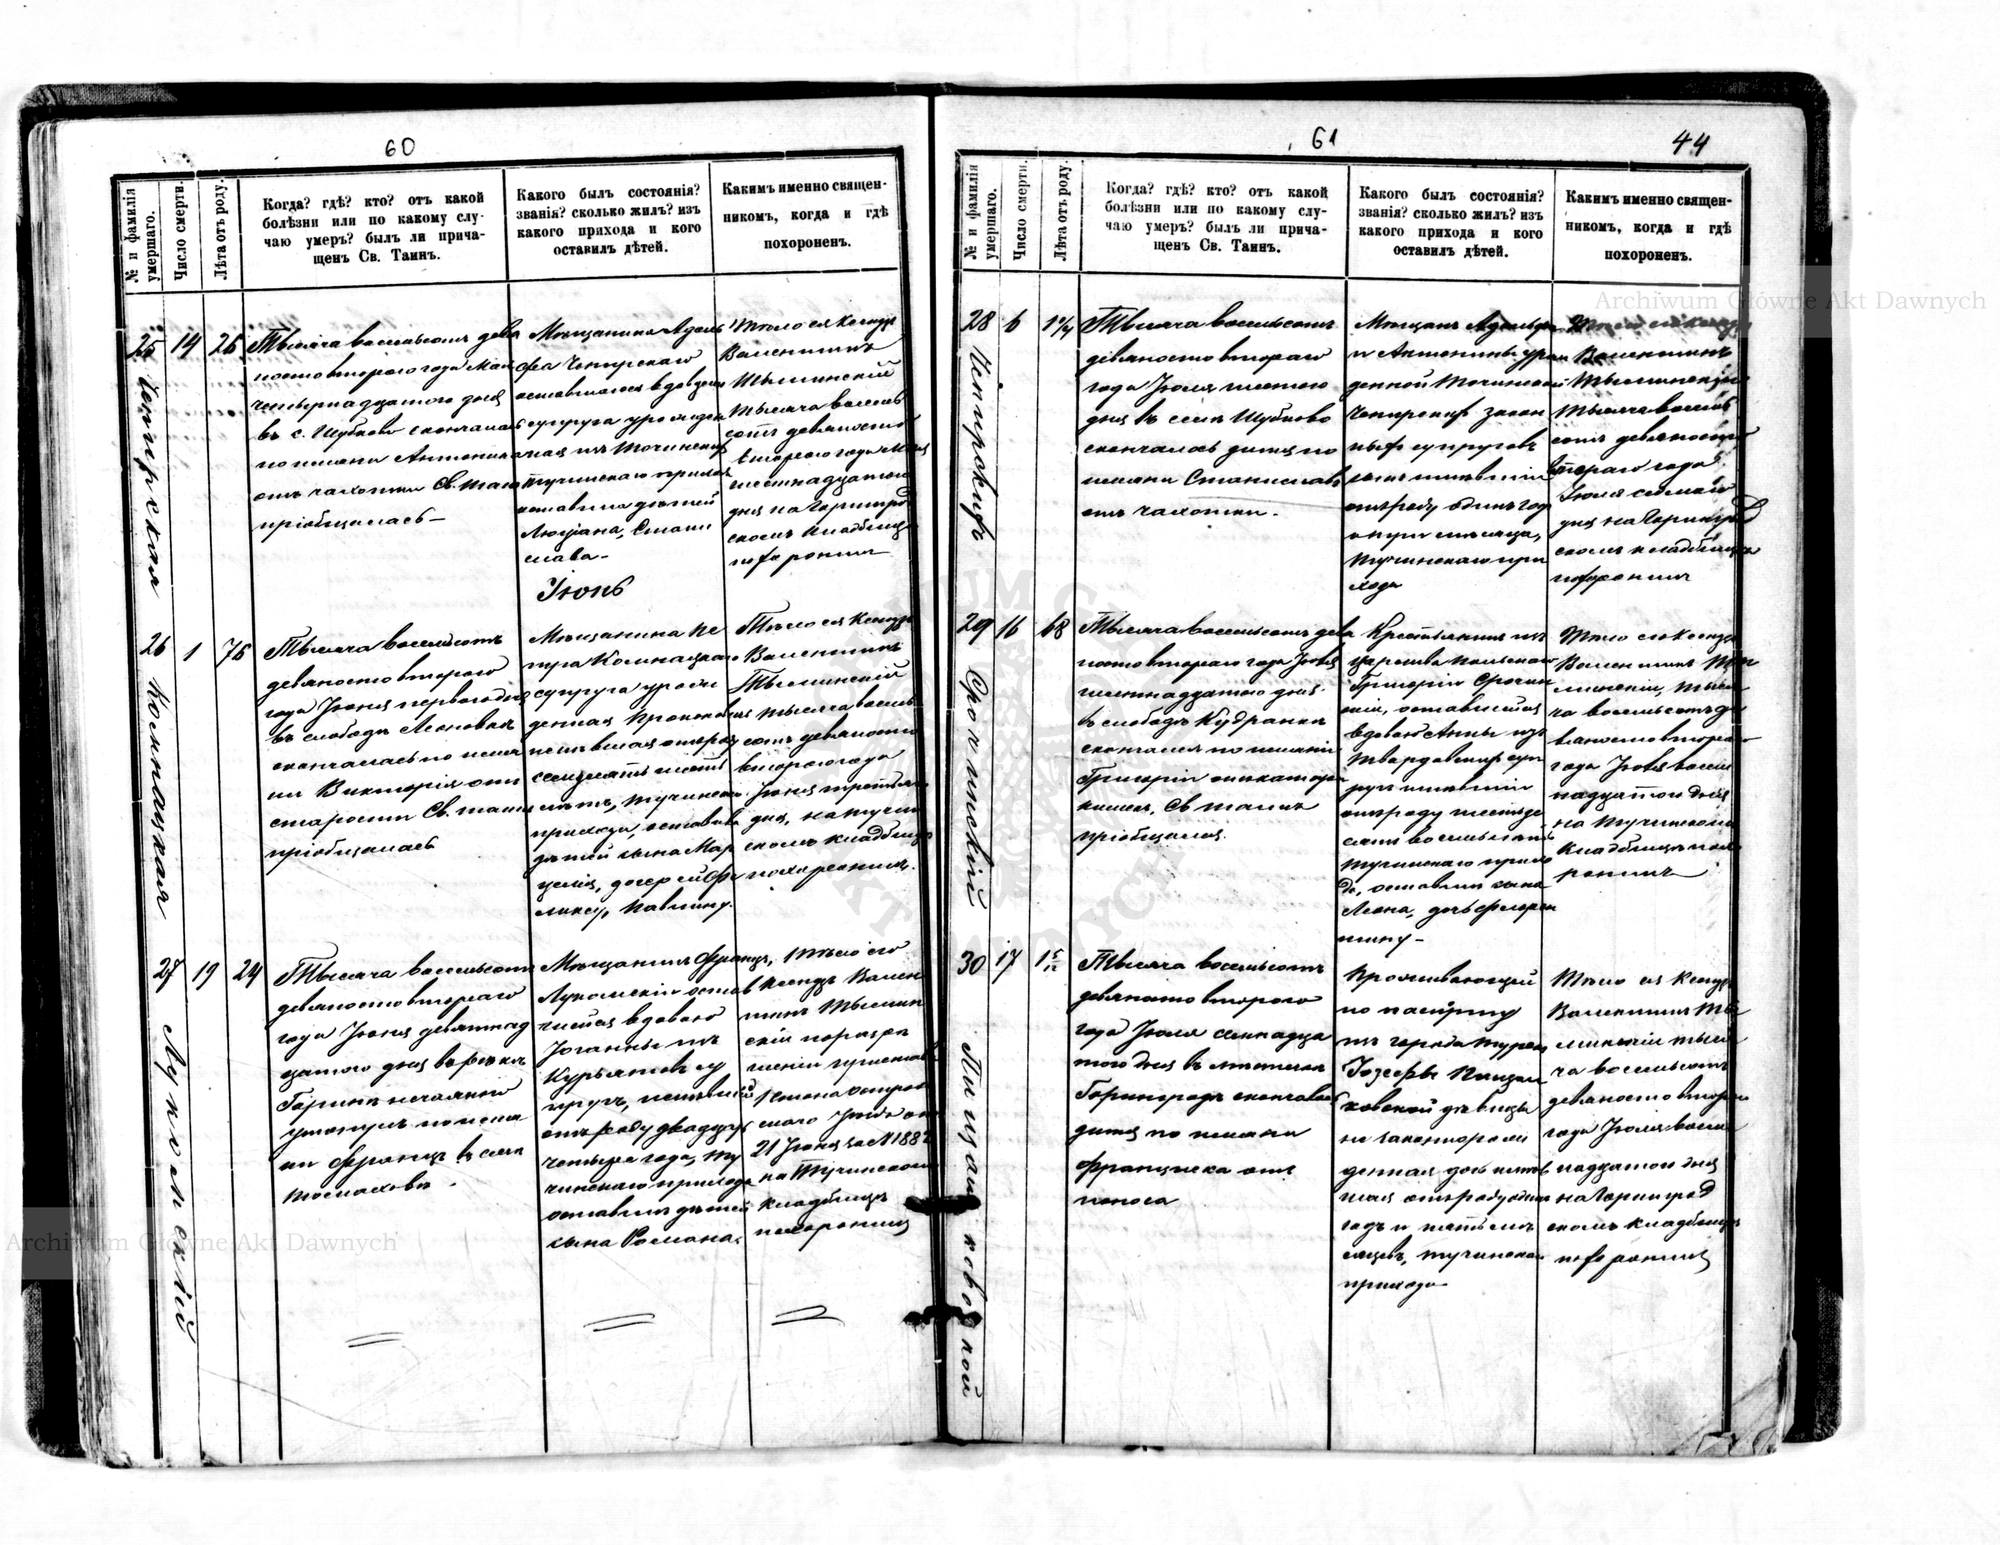 60
№ и фамилія умершаго.
Число смерти.
Лѣта отъ роду.
Когда? гдѣ? кто? отъ какой
болѣзни или по какому слу-
чаю умеръ? былъ ли прича-
щенъ Св. Таинъ.
Какого былъ состоянія?
званія? сколько жилъ? изъ
какого прихода и кого
оставилъ дѣтей.
Какимъ именно священ-
никомъ, когда и гдѣ
похороненъ.
25
14
26
Тысяча восемьсотъ девя
носто втораго года Мая
четырнадцатого дня
въ с. Шубково скончалась
по имени Антонина
отъ чахотки Св. таин
пріобщалась
Мѣщанина Адоль
фа
оставшаяся вдовцем
супруга урожден
ная
Тучинскаго прихода
оставила дѣтей
Люціана, Стани
слава
Тѣло ея Ксендзъ
Валентинъ
Тыминскій
тысяча восемь
сотъ девяносто
втораго года Мая
шестнадцатого
дня на Горинград
скомъ кладбищѣ
похоронилъ
Іюнь
26 Колнацкая
1
76
Тысяча восемьсотъ
девяносто втораго
года Іюня перваго дня
въ слободѣ
скончалась по имени
Викторія отъ
старости Св. таин
пріобщалась
Мѣщанина Пе
тра Колнацкаго
супруга урожд
денная
жившая отъ роду
семдесятъ шесть
лѣтъ, Тучинскаго
прихода, оставила
дѣтей сына Мар
целія, дочерей Фе
ликсу, Павлину.
Тѣло ея Ксендзъ
Валентинъ
Тыминскій
тысяча восемь
сотъ девяносто
втораго года
Іюня третьяго
дня, на Тучин
скомъ кладбищѣ
похоронилъ.
27 Лукомскій
19
24
Тысяча восемьсотъ
девяносто втораго
года Іюня девятнад
цатого дня въ рѣкѣ
Горинь нечаянно
утонулъ по имени
Францъ въ селѣ
Мѣщанинъ Францъ
Лукомскій остав
шійся вдовою
Іоанны изъ
супругъ, жившій
отъ роду двадцать
четыре года, Ту
чинскаго прихода
оставилъ дѣтей
сына Романа.
Тѣло его
Ксендзъ Вален
тинъ Тымин
скій
21 Іюня за № 1882
на Тучинскомъ
кладбищѣ
похоронилъ
61
44
№ и фамилія умершаго.
Число смерти.
Лѣта отъ роду.
Когда? гдѣ? кто? отъ какой
болѣзни или по какому слу-
чаю умеръ? былъ ли прича-
щенъ Св. Таинъ.
Какого былъ состоянія?
званія? сколько жилъ? изъ
какого прихода и кого
оставилъ дѣтей.
Какимъ именно священ-
никомъ, когда и гдѣ
похороненъ.
28
6
1 1/4
Тысяча восемьсотъ
девяносто втораго
года Іюля шестого
дня въ селѣ Шубково
скончалось дитя по
имени Станиславъ
отъ чахотки.
Мѣщанъ Адольфа
и Антонины урож
денной
закон
ныхъ супруговъ
сынъ жившій
отъ роду одинъ годъ
и три мѣсяца,
Тучинскаго при
хода
Валентинъ
Тыминскій
тысяча восемь
сотъ девяносто
втораго года
Іюля седьмаго
дня на Горинград
скомъ кладбищѣ
похоронилъ
29 Срочинскій
16
68
Тысяча восемьсотъ девя
носто втораго года Іюля
шестнадцатого дня
въ слободѣ Кудранка
скончался по имени
Григорій
Св таинъ
пріобщался
Крестьянинъ изъ
царства польскаго
Григорій Срочин
скій, оставшійся
вдовою Анны изъ
Твардовскихъ суп
ругъ жившій
отъ роду шестьде
сятъ восемь лѣтъ
Тучинскаго прихо
да, оставилъ сына
Леона, дочь Флорен
тину
Тѣло его Ксендзъ
Валентинъ Ты
минскій, тыся
ча восемьсотъ де
вяносто втораго
года Іюля восем
надцатого дня
на Тучинскомъ
кладбищѣ похо
ронилъ
30
17
1 5/12
Тысяча восемьсотъ
девяносто втораго
года Іюля семнадца
того дня въ мѣстечкѣ
Горинградъ скончалось
дитя по имени
Франциска отъ
поноса
Проживающей
по паспорту
изъ города
Іозефы
ковской дѣвицы
не законнорож
денная дочь жив
шая отъ роду одинъ
годъ и пять мѣ
сяцевъ, Тучинскаго
прихода
Тѣло ея Ксендзъ
Валентинъ Ты
минскій тыся
ча восемьсотъ
девяносто втораго
года Іюля восем
надцатого дня
на Горинград
скомъ кладбищѣ
похоронилъ
Archiwum Główne Akt Dawnych
Archiwum Główne Akt Dawnych